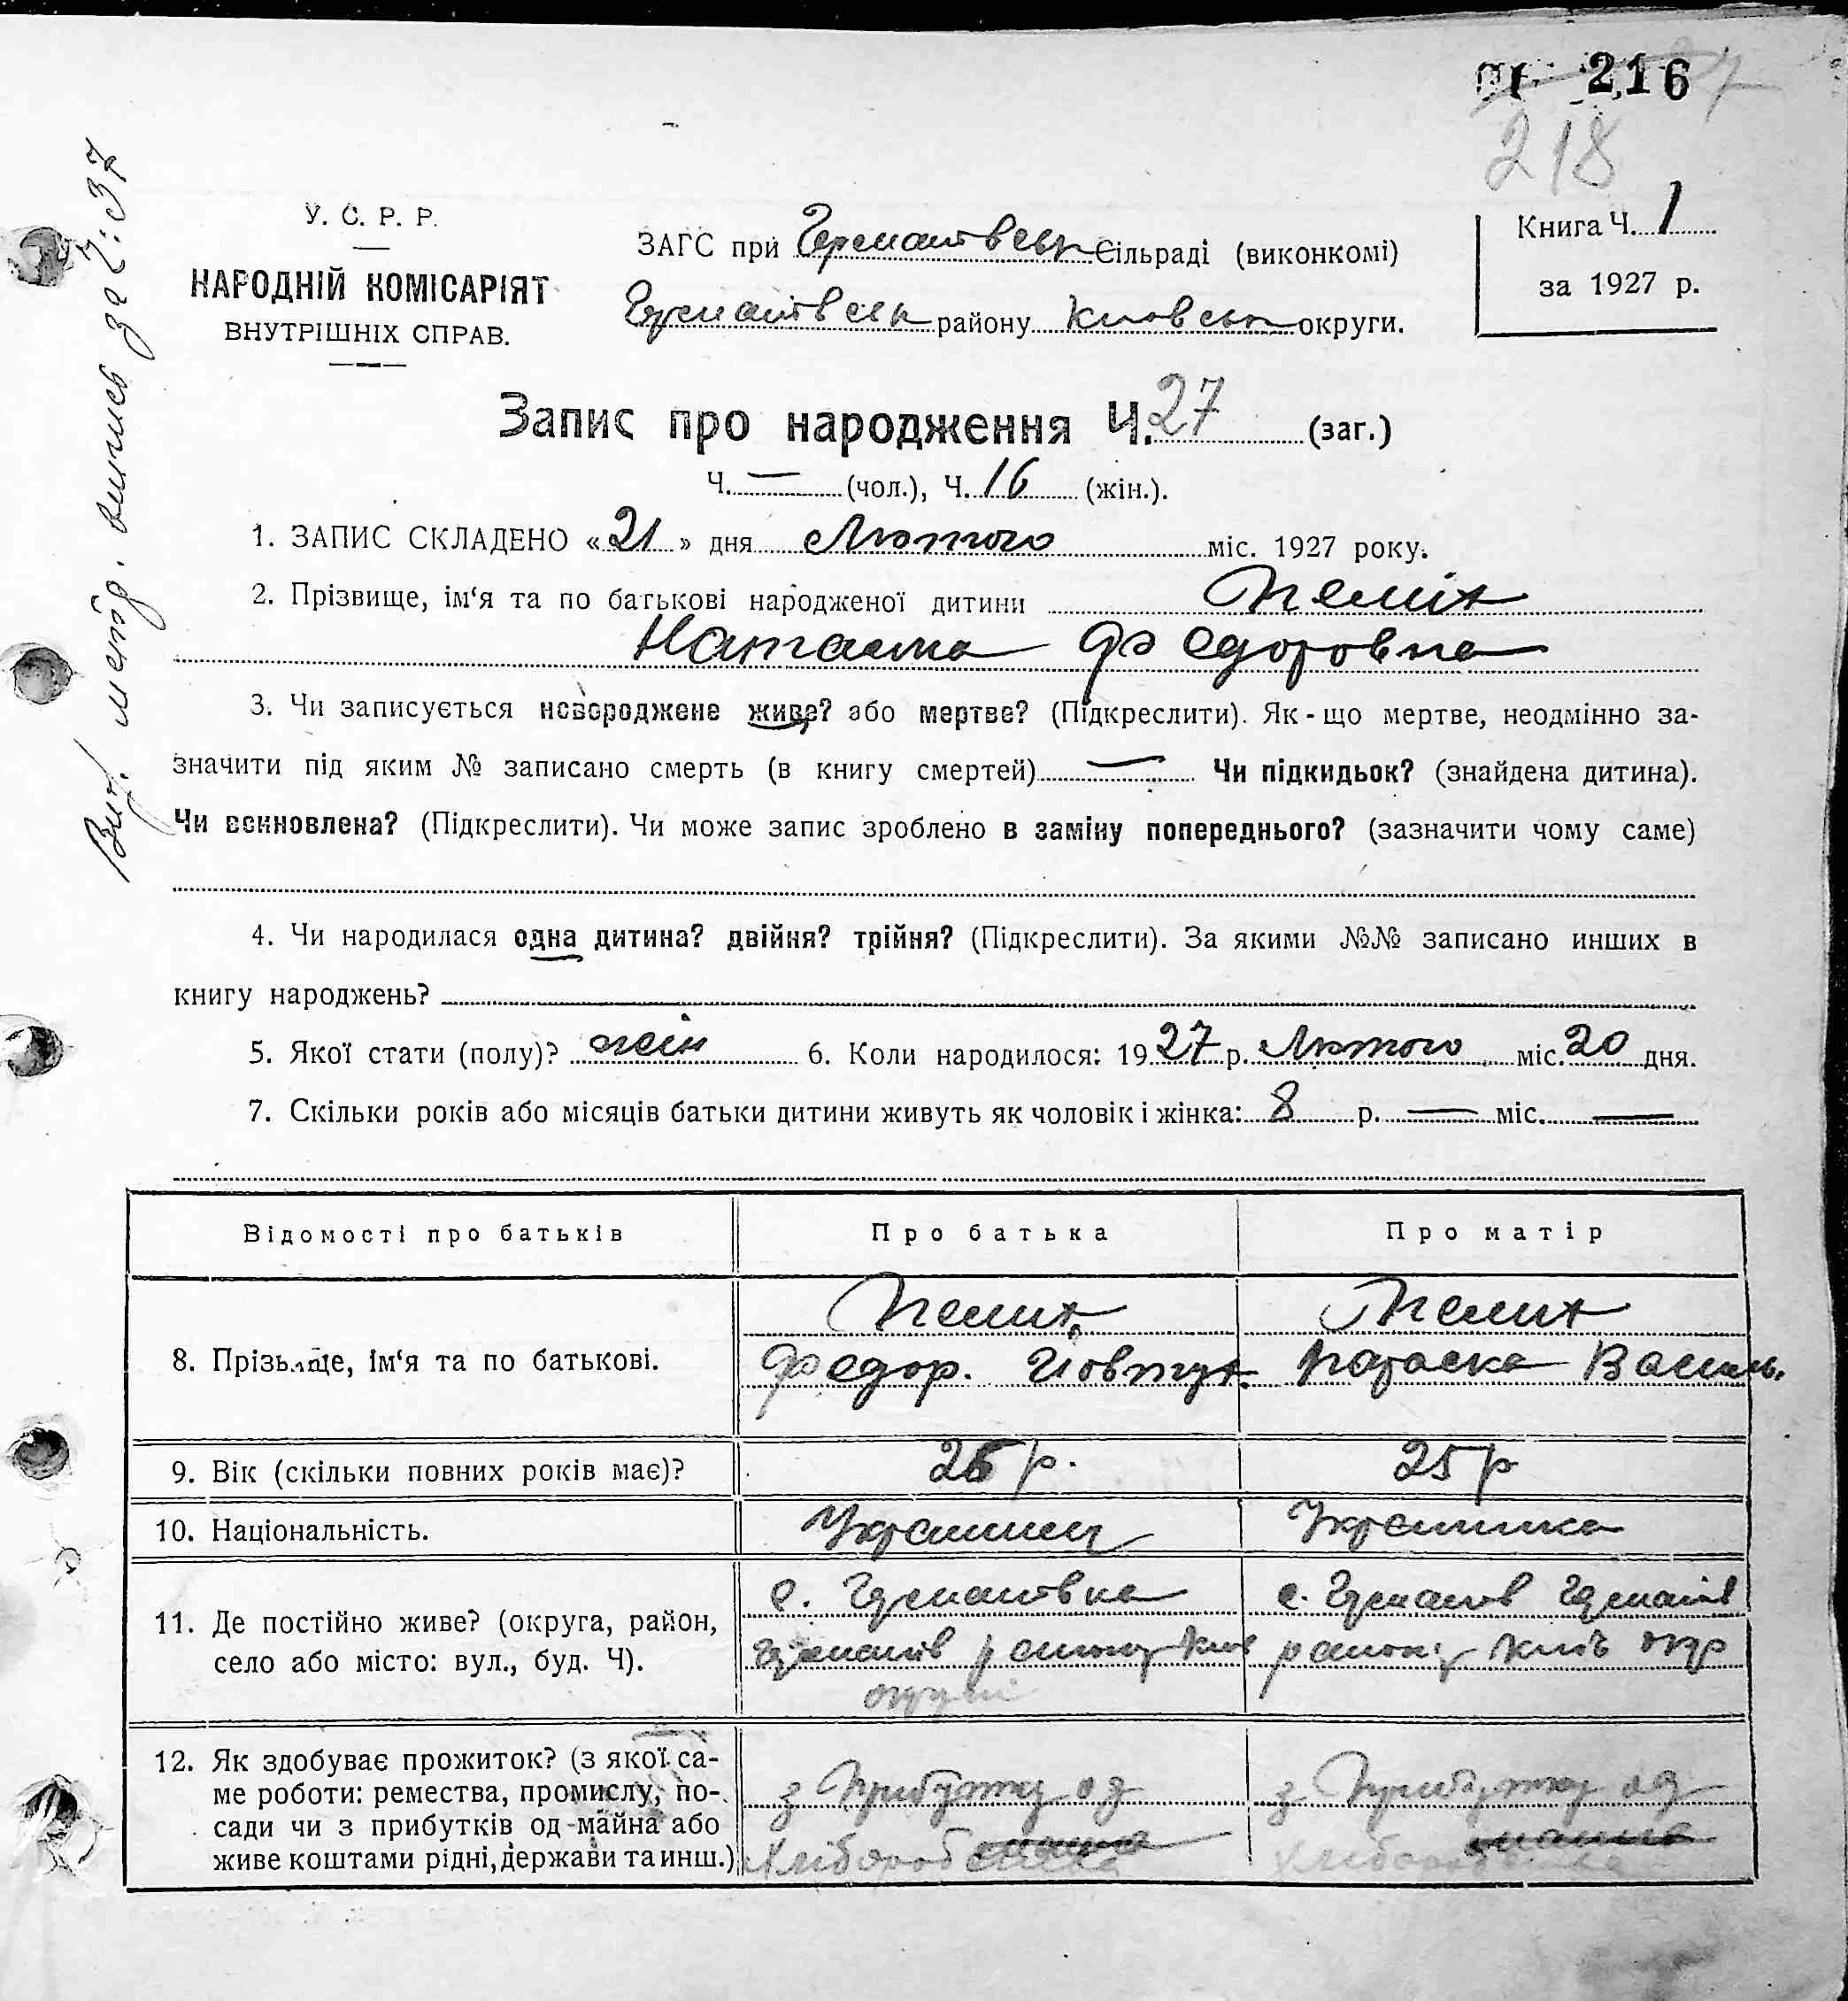 216
218
У. С. Р. Р.
НАРОДНІЙ КОМІСАРІЯТ
ВНУТРІШНІХ СПРАВ.
ЗАГС при Германівськ Сільраді (виконкомі)
Германівськ району Київськ округи.
Книга Ч. 1
за 1927 р.
Запис про народження Ч. 27 (заг.)
Ч. — (чол.), Ч. 16 (жін.).
1. ЗАПИС СКЛАДЕНО «21» дня Лютого міс. 1927 року.
2. Прізвище, ім‘я та по батькові народженої дитини
Федоровна
3. Чи записується новороджене живе? або мертве? (Підкреслити). Як-що мертве, неодмінно за-
значити під яким № записано смерть (в книгу смертей) — Чи підкидьок? (знайдена дитина).
Чи всиновлена? (Підкреслити). Чи може запис зроблено в заміну попереднього? (зазначити чому саме)
4. Чи народилася одна дитина? двійня? трійня? (Підкреслити). За якими №№ записано инших в
книгу народжень?
5. Якої стати (полу)? жін 6. Коли народилося: 1927 р. Лютого міс. 20 дня.
7. Скільки років або місяців батьки дитини живуть як чоловік і жінка: 8 р. — міс. —
Відомості про батьків Про батька Про матір
8. Прізвище, ім‘я та по батькові.
Федор. Параска Василь.
9. Вік (скільки повних років має)? 26 р. 25 р
10. Національність. Украинец Украинка
11. Де постійно живе? (округа, район,
село або місто: вул., буд. Ч).
с. Германівка с. Германів Германів
Германів району Київ району Київ окр
округи
12. Як здобуває прожиток? (з якої са-
ме роботи: ремества, промислу, по-
сади чи з прибутків од майна або
живе коштами рідні, держави та инш.)
з прибутку од з прибутку од